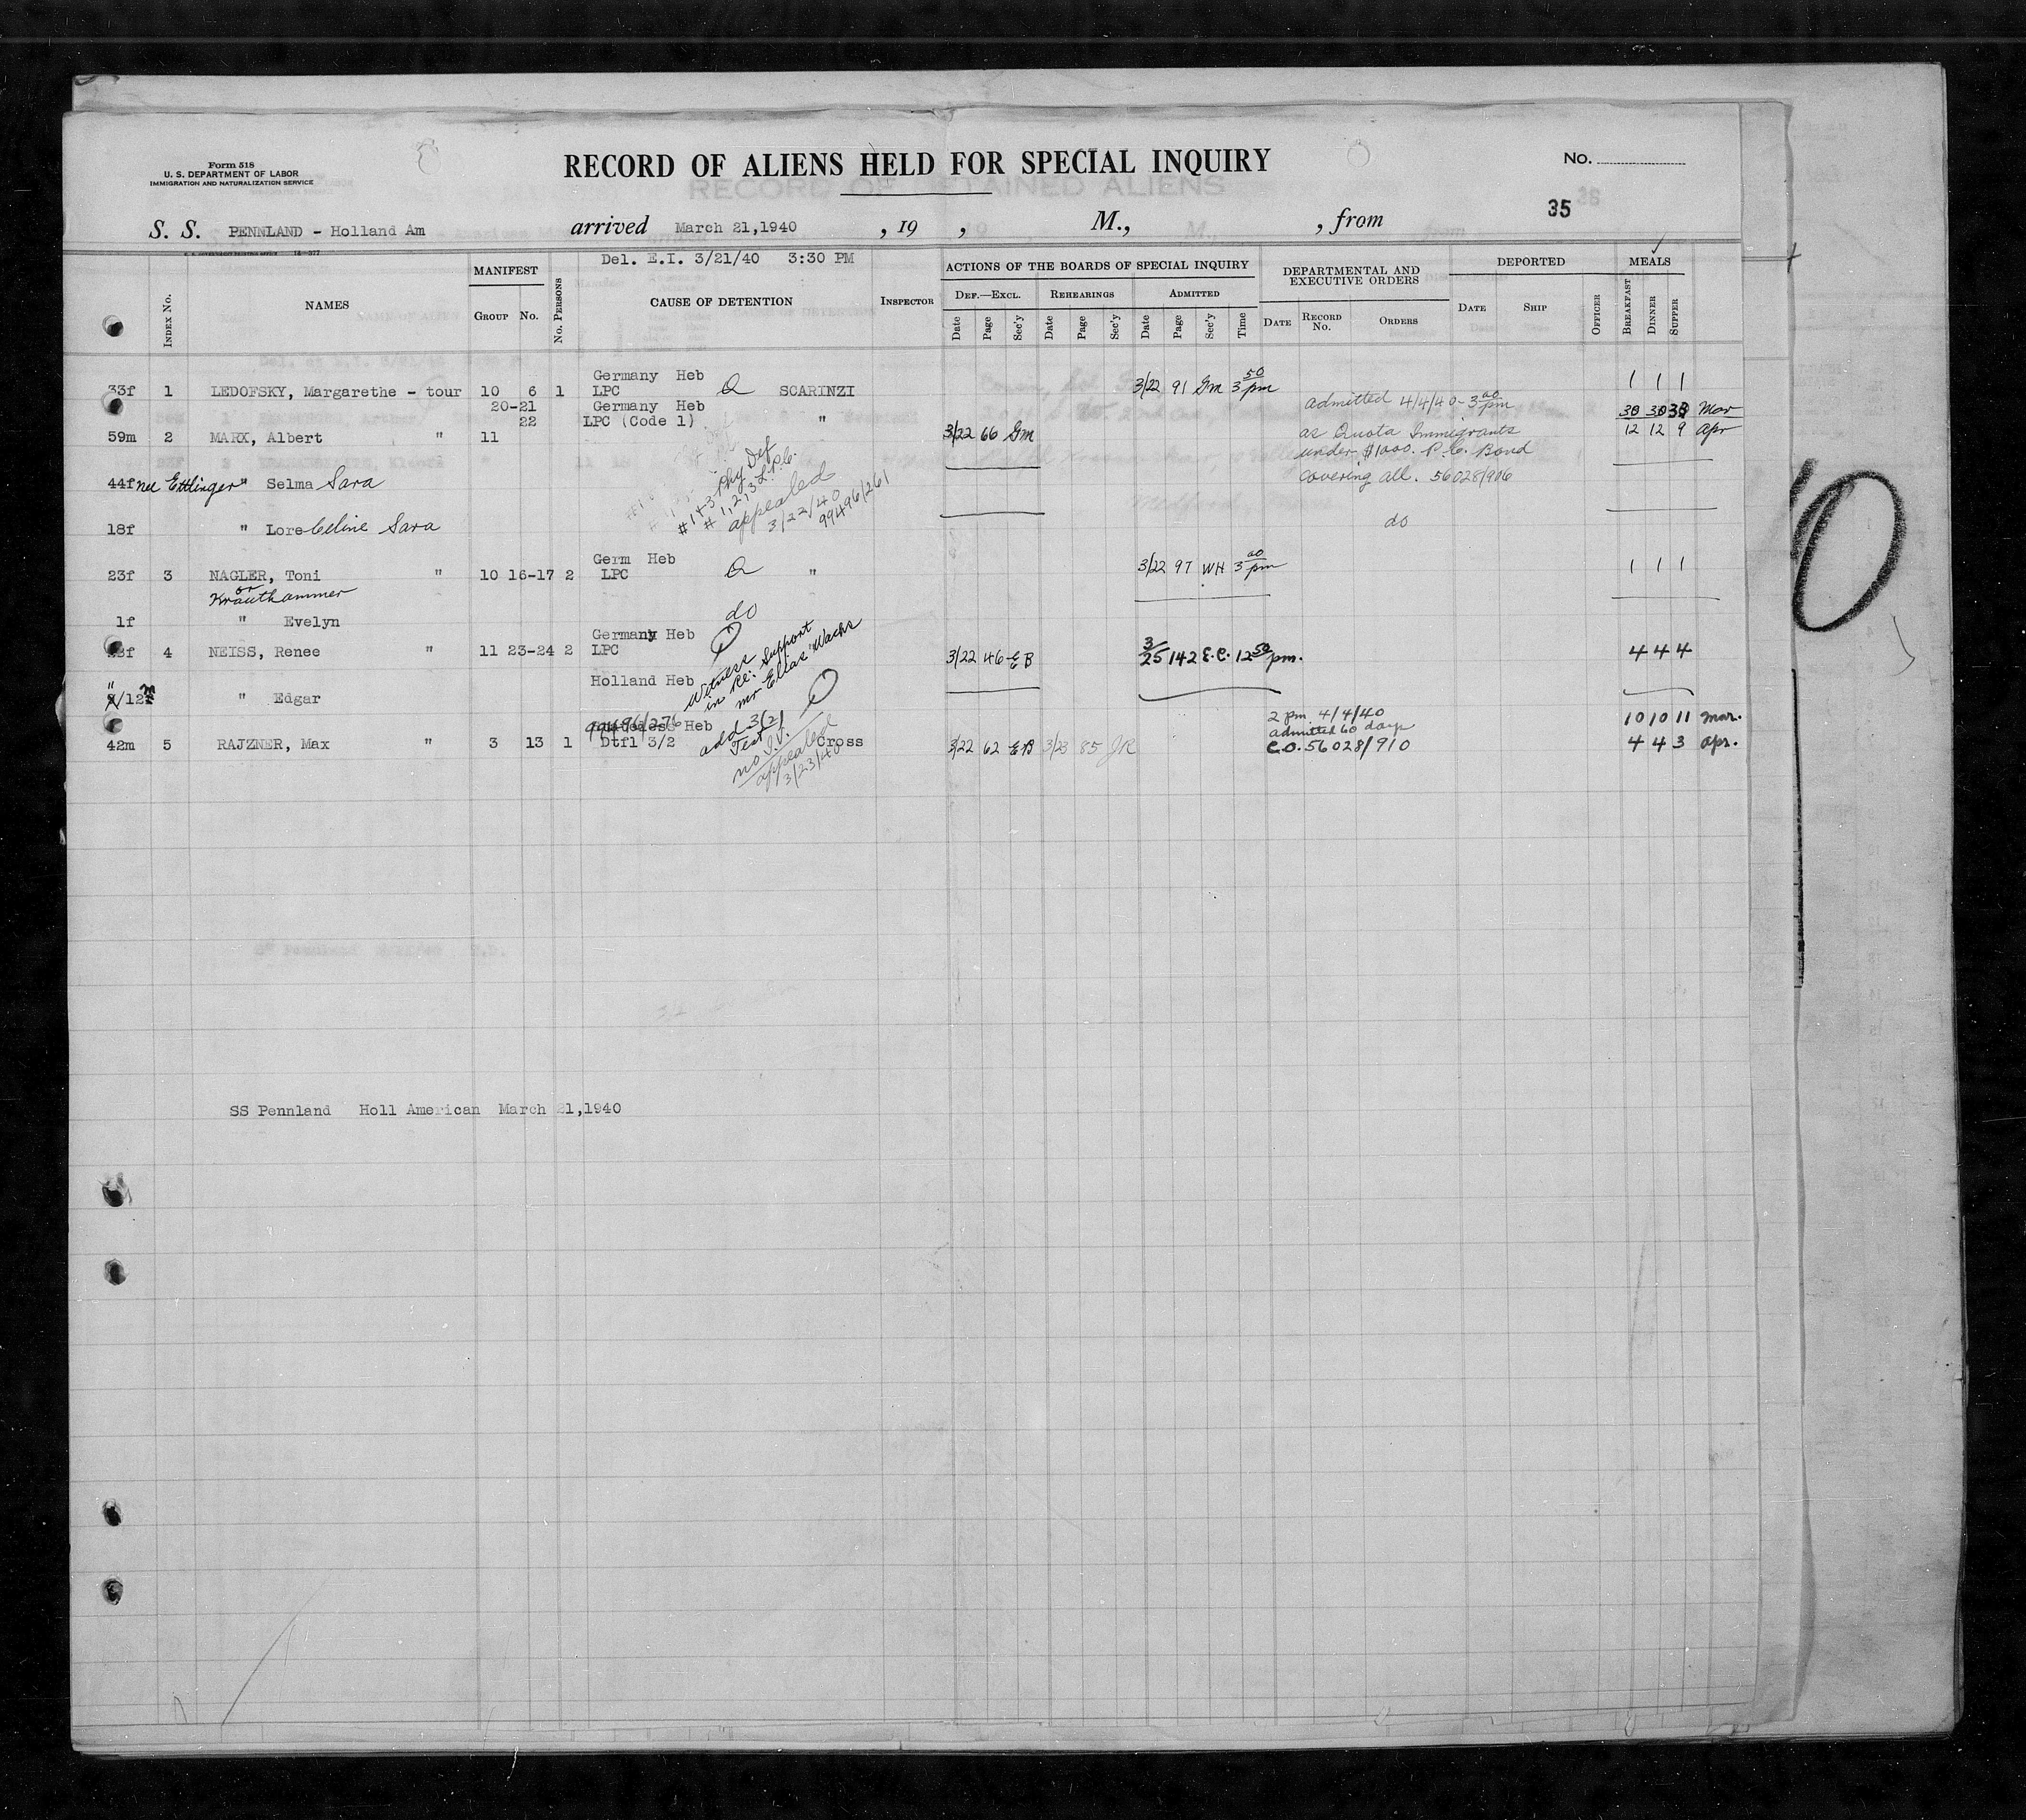 Form 518
U. S. DEPARTMENT OF LABOR
IMMIGRATION AND NATURALIZATION SERVICE
RECORD OF ALIENS HELD FOR SPECIAL INQUIRY
No.
35
S. S. PENNLAND - Holland Am arrived March 21,1940 , 19 , M., , from
Del. E.I. 3/21/40 3:30 PM
INDEX No. NAMES MANIFEST GROUP No. No. PERSONS CAUSE OF DETENTION INSPECTOR
ACTIONS OF THE BOARDS OF SPECIAL INQUIRY
DEF.—EXCL. Date Page Sec'y REHEARINGS Date Page Sec'y ADMITTED Date Page Sec'y Time
DEPARTMENTAL AND EXECUTIVE ORDERS DATE RECORD No. ORDERS
DEPORTED DATE SHIP OFFICER
MEALS BREAKFAST DINNER SUPPER
Germany Heb
33f 1 LEDOFSKY, Margarethe - tour 10 6 1 LPC SCARINZI 3/22 91 GM 3 50 pm 1 1 1
20-21 Germany Heb admitted 4/4/40 - 3 00 pm 30 30 Mar
22 LPC (Code 1) "
59m 2 MARX, Albert " 11 3/22 66 GM as Quota Immigrants 12 12 9 Apr
under $1000. P.C. Bond
44f nee Ettlinger " Selma Sara covering all. 56028/906
#1+3 Phy Def
#1,2,3 L.P.C.
appealed
3/22/40
99496/261
18f " Lore Celine Sara do
Germ Heb
23f 3 NAGLER, Toni " 10 16-17 2 LPC " 3/22 97 WH 3 00 pm 1 1 1
or
Krauthammer
1f " Evelyn do
Germany Heb
4 NEISS, Renee " 11 23-24 2 LPC 3/22 46 EB 3/25 142 E.C. 12 50 pm. 4 4 4
Witness
in Re: Support
Mr Elias Wachs
Holland Heb
" Edgar
99496/276 Heb
2 pm. 4/4/40 10 10 11 Mar.
admitted 60 days
42m 5 RAJZNER, Max " 3 13 1 Dtfl 3/2 Cross 3/22 62 EB 3/23 85 JR C.O. 56028/910 4 4 3 Apr.
add 3(2)
Test
appealed
3/23/40
SS Pennland Holl American March 21,1940